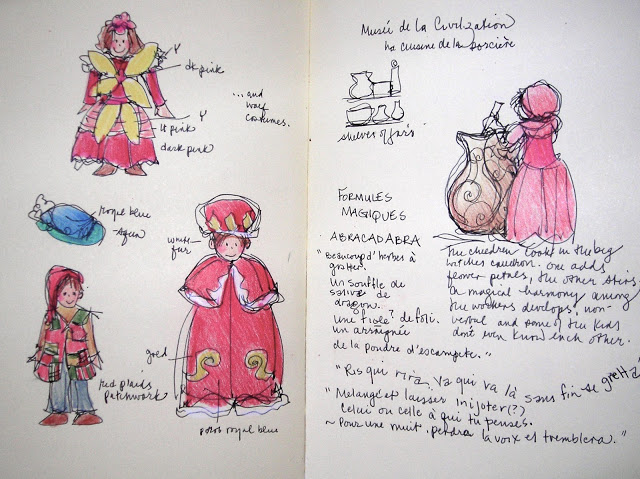 Y
dk pink
Y
lt pink
dark pink
...and
wolf
costumes.
royal blue
aqua
white
fur
gold
red plaids
patchwork
royal blue
Musée de la Civilization
la cuisine de la sorcière
shelves of jars
FORMULES
MAGIQUES
ABRACADABRA
"Beaucoup d'herbes à
gratter.
Un souffle de
salive de
dragon.
une fiole? de foli.
un arraignée
de la poudre d'escampete."
The children look in the big
witches cauldron. One adds
flower petals, the other stirs.
A magical harmony among
the workers develops, non-
verbal and some of the kids
don't even know each other.
"Ris qui rira, va qui va là sans fin se gratta"
"Melangé et laisser mijoter(?)
celui ou celle à qui tu penses.
~ Pour une nuit perdra la voix et tremblera."